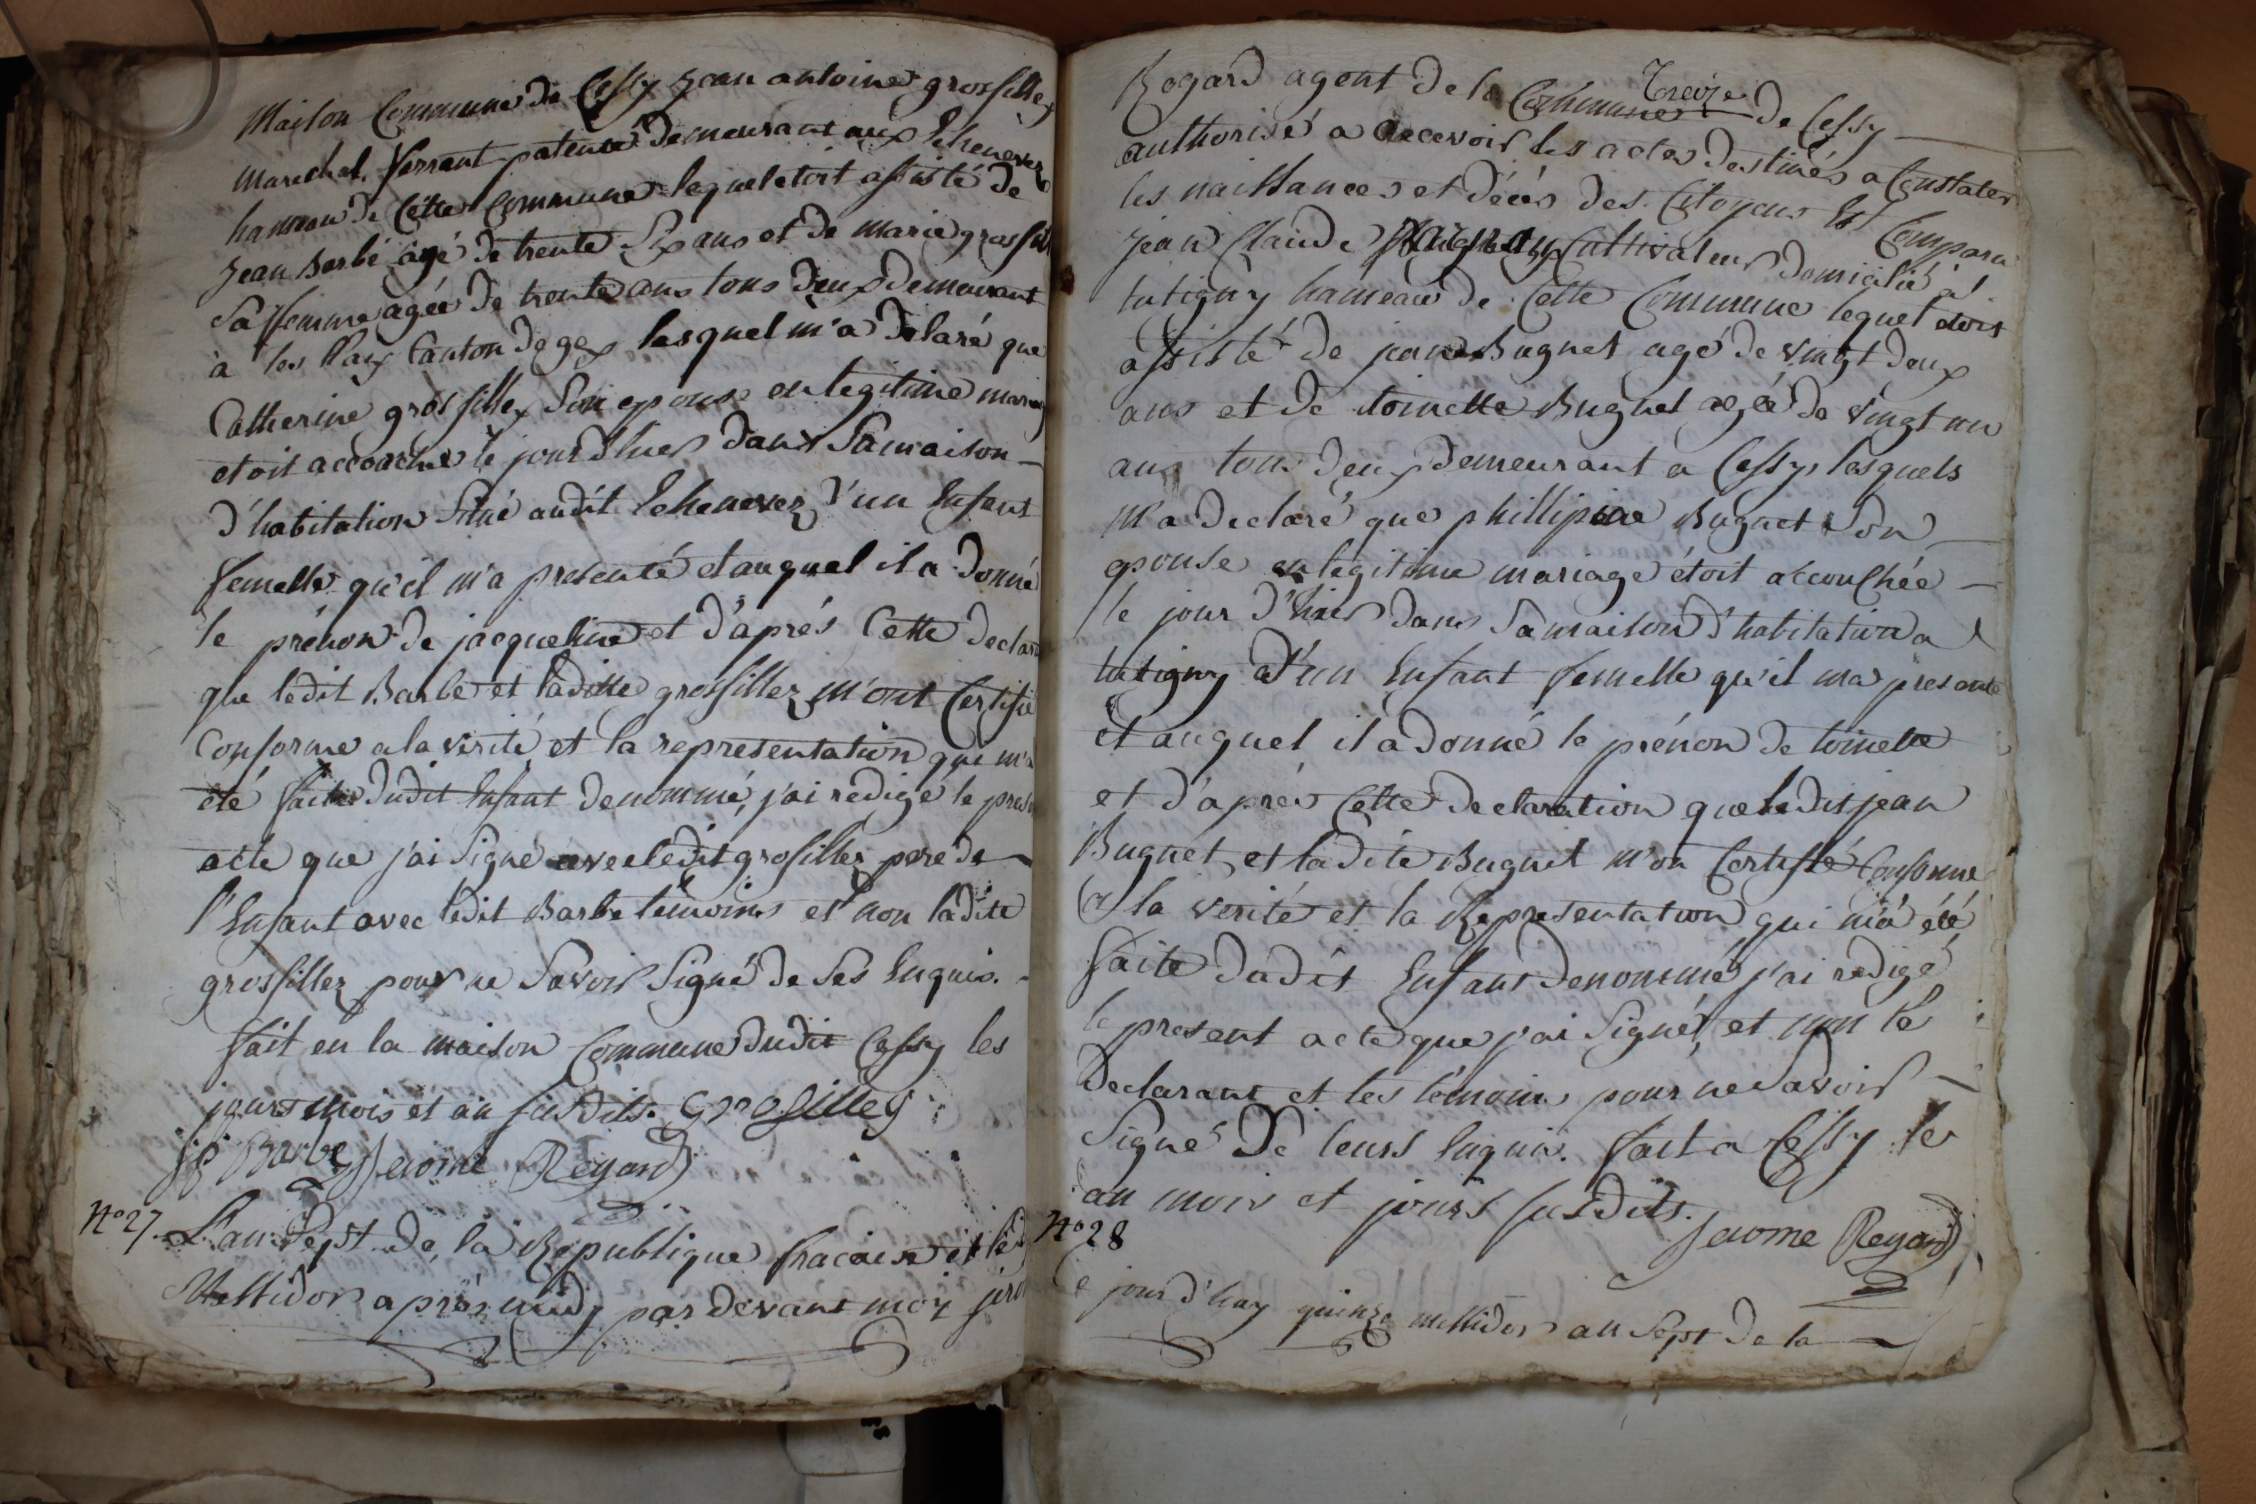 Maison Commune de Cessy jean antoine grosfillex
marechal ferrant patenté demeurant aux Echenevex
hameau de Cette Commune lequel etoit assisté de
jean Barbé agé de trente Six ans et de marie grosfill
Sa femme agée de trente ans tous deux demeurant
à les Canton de gex lesquel m'a delaré que
Catherine grosfillex Son epouse en legitime mariag
etoit accouchée le jour d'hier dans Sa maison
d'habitation Situé audit Echenevex d'un Enfant
femelle qu'il m'a presenté et auquel il a donné
le prénon de jacqueline et d'aprés Cette declara
que ledit Barbe et laditte grosfillez m'ont Certifié
Conforme a la verité et la representation qui m'a
été faite dudit Enfant denommé, j'ai redigé le prese
acte que j'ai Signé avec ledit grosfillez pere de
l'Enfant avec ledit Barbe témoins et non ladite
grosfillez pour ne Savoir Signé de Ses Enquis.
fait en la maison Commune dudit Cessy les
jours mois et an susdits. Grosilley
Barbe Jerome Regard
N° 27 L'an Sept de la Republique fracaise et le
Messidor apres midy par devant moy jero
treize
Regard agent de la Commune de Cessy
authorisé a recevoir les actes destinés a Constater
les naissances et décés des Citoyens Est Comparu
jean Claude Cultivateur domicilié à
tutigny hameau de Cette Commune lequel etoit
assisté de jean Bugnet agé de vingt deux
ans et de toinette Bugnet agée de vingt un
ans tous deux demeurant a Cessy, lesquels
m'a declaré que phillipine Bugnet Son
epouse en legitime mariage étoit accouchée
le jour d'hier dans Sa maison d'habitation a
tutigny d'un Enfant femelle qu'il ma presenté
et auquel il a donné le prénon de toinette
et d'aprés Cette declaration que ledit jean
Bugnet et ladite Bugnet m'on Certifié Conforme
a la verité et la Representation qui m'a été
faite dudit Enfant denommé j'ai redigé
le present acte que j'ai Signé, et non le
declarant et les témoins pour ne Savoir
Signé de leurs Enquis. fait a Cessy les
an mois et jours susdits.
Jerome Regard
N° 28
e jour d'huy quinze messidor an Sept de la